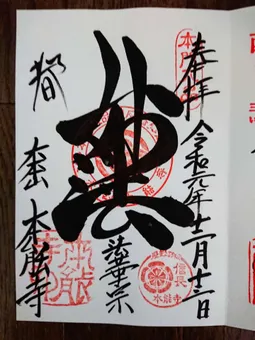 奉拝 令和元年十一月十二日
妙法
法華宗
都
大本山 本能寺
信長
本能寺